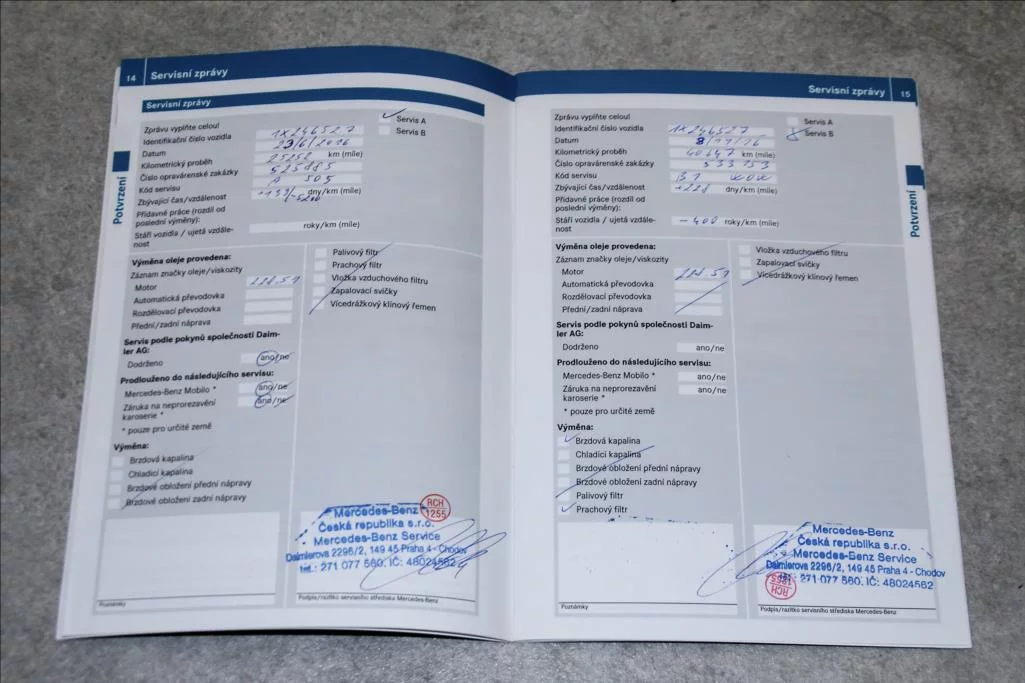 14 Servisní zprávy
Servisní zprávy
Zprávu vyplňte celou!
Servis A
Servis B
Identifikační číslo vozidla 1X246527
Datum 23/6/2016
Kilometrický proběh 25258 km (míle)
Číslo opravárenské zakázky
Kód servisu A 505
Zbývající čas/vzdálenost dny/km (míle)
Přídavné práce (rozdíl od
poslední výměny):
Stáří vozidla / ujetá vzdále-
nost
roky/km (míle)
Výměna oleje provedena:
Záznam značky oleje/viskozity
Motor 228.51
Automatická převodovka
Rozdělovací převodovka
Přední/zadní náprava
Servis podle pokynů společnosti Daim-
ler AG:
Dodrženo ano/ne
Prodlouženo do následujícího servisu:
Mercedes-Benz Mobilo * ano/ne
Záruka na neprorezavění
karoserie *
ano/ne
* pouze pro určité země
Výměna:
Brzdová kapalina
Chladicí kapalina
Brzdové obložení přední nápravy
Brzdové obložení zadní nápravy
Palivový filtr
Prachový filtr
Vložka vzduchového filtru
Zapalovací svíčky
Vícedrážkový klínový řemen
Mercedes-Benz
Česká republika s.r.o.
Mercedes-Benz Service
Daimlerova 2296/2, 149 45 Praha 4 - Chodov
tel.: 271 077 560, IČ: 48024562
RCH
1255
Poznámky
Podpis/razítko servisního střediska Mercedes-Benz
Potvrzení
Servisní zprávy 15
Zprávu vyplňte celou!
Servis A
Servis B
Identifikační číslo vozidla 1X246527
Datum 8/11/16
Kilometrický proběh 40647 km (míle)
Číslo opravárenské zakázky 533753
Kód servisu B1
Zbývající čas/vzdálenost +228 dny/km (míle)
Přídavné práce (rozdíl od
poslední výměny):
Stáří vozidla / ujetá vzdále-
nost
-400 roky/km (míle)
Výměna oleje provedena:
Záznam značky oleje/viskozity
Motor 228.51
Automatická převodovka
Rozdělovací převodovka
Přední/zadní náprava
Servis podle pokynů společnosti Daim-
ler AG:
Dodrženo ano/ne
Prodlouženo do následujícího servisu:
Mercedes-Benz Mobilo * ano/ne
Záruka na neprorezavění
karoserie *
ano/ne
* pouze pro určité země
Výměna:
Brzdová kapalina
Chladicí kapalina
Brzdové obložení přední nápravy
Brzdové obložení zadní nápravy
Palivový filtr
Prachový filtr
Vložka vzduchového filtru
Zapalovací svíčky
Vícedrážkový klínový řemen
Mercedes-Benz
Česká republika s.r.o.
Mercedes-Benz Service
Daimlerova 2296/2, 149 45 Praha 4 - Chodov
tel.: 271 077 560, IČ: 48024562
RCH
1255
Poznámky
Podpis/razítko servisního střediska Mercedes-Benz
Potvrzení